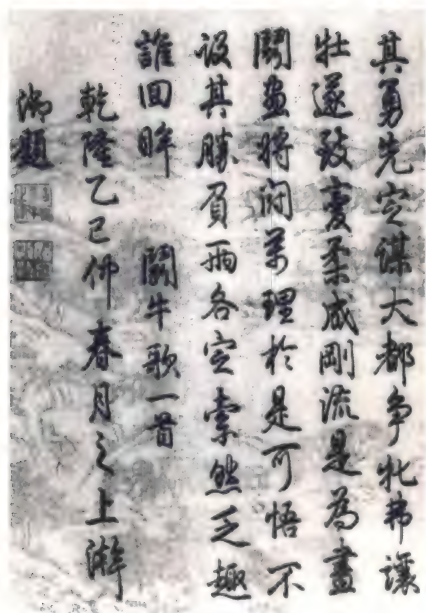 其勇先定謀大都爭牝弗讓
牡遂致變柔成剛流是為畫
鬭畫將理於是可悟不
設其勝負兩各定索然乏趣
誰回眸 鬭牛歌一首
乾隆乙巳仲春月之上澣
御題